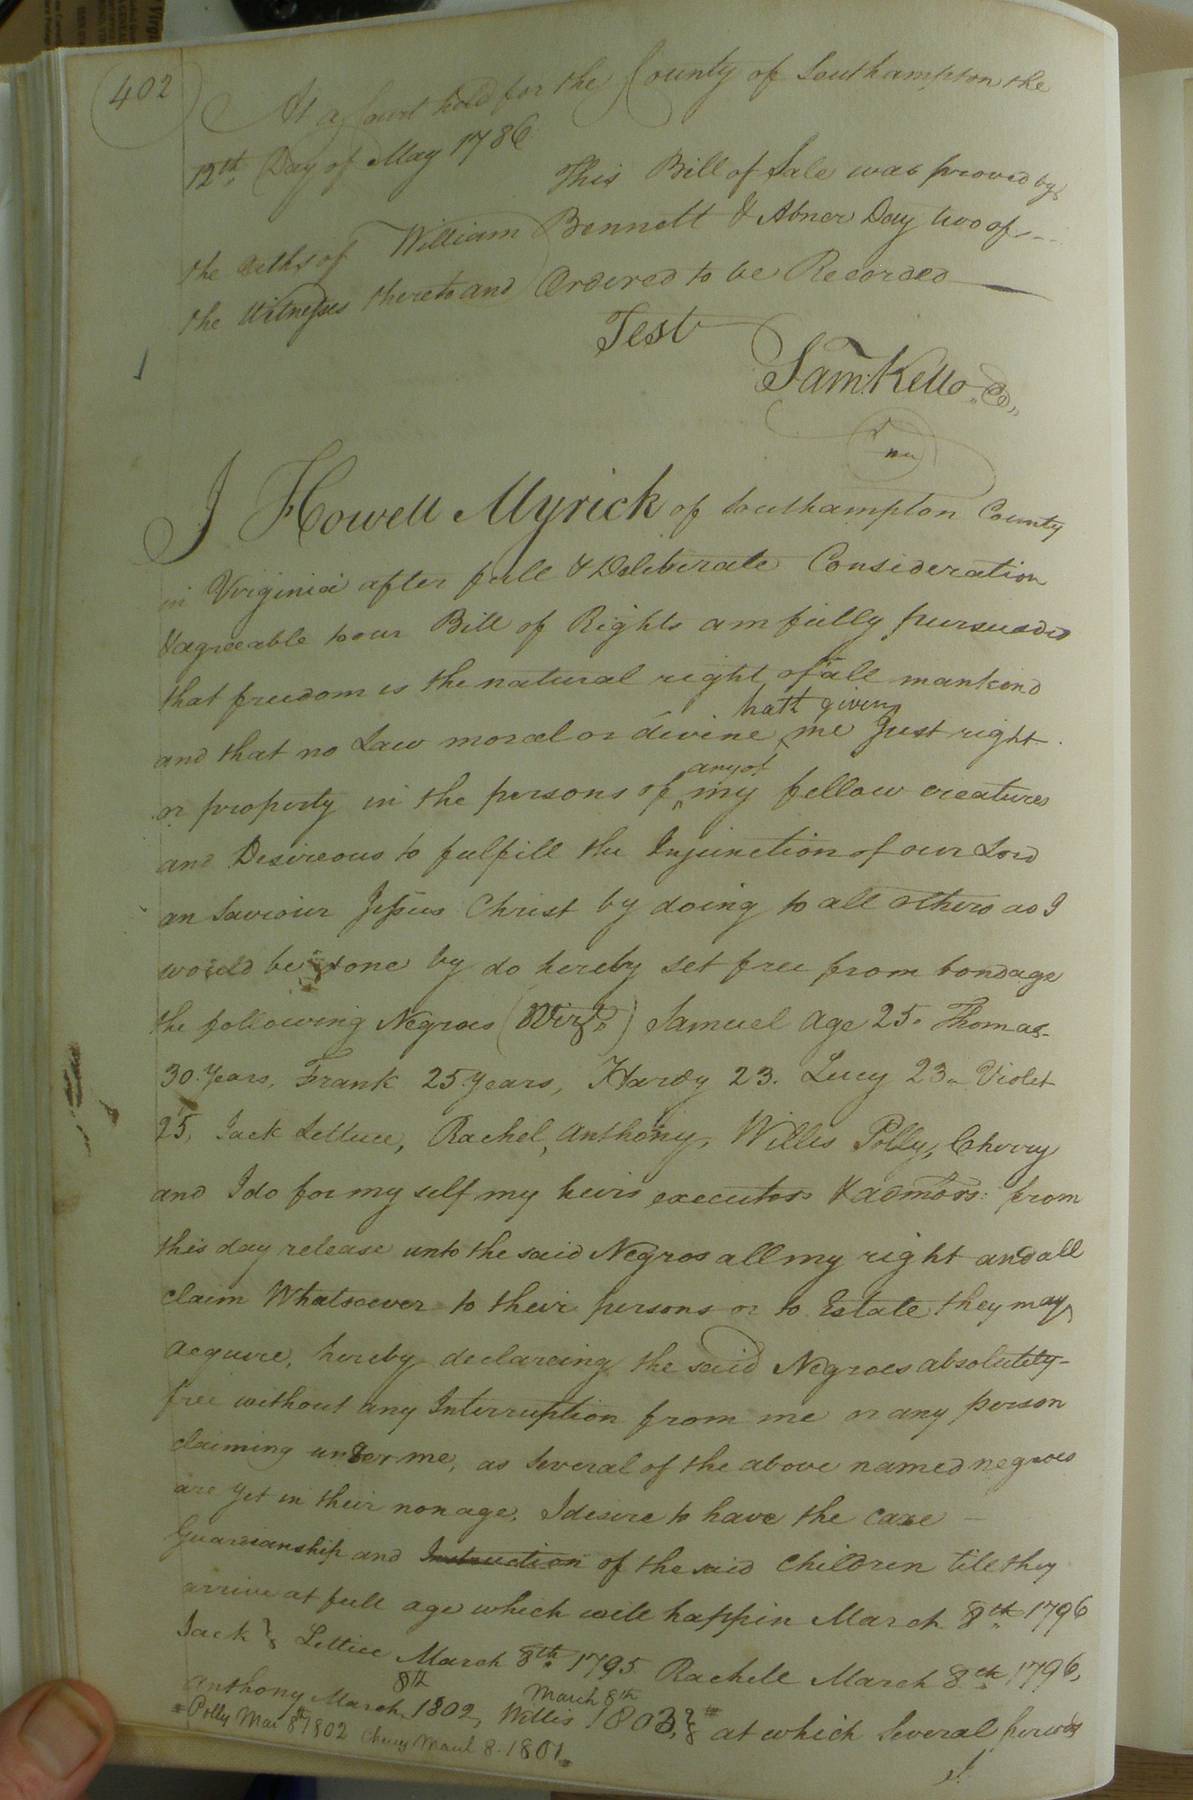 402
At a Court held for the County of Southampton the
12th Day of May 1786
This Bill of Sale was proved by
the Oaths of William Bennett & Abner Day two of
the Witnesses thereto and Ordered to be Recorded
Test
Sam: Kello
I Howell Myrick of Southampton County
in Virginia after full & Deliberate Consideration
& agreeable to our Bill of Rights am fully pursuaded
that freedom is the natural right of all mankind
hath given
and that no Law moral or divine me Just right
any of
or property in the persons of my fellow creatures
and Desireous to fulfill the Injunction of our Lord
an Saviour Jesus Christ by doing to all others as I
would be done by do hereby set free from bondage
the following Negroes (Vizt.) Samuel age 25. Thomas
30. Years, Frank 25 Years, Hardy 23. Lucy 23. Violet
25, Jack Lettuce, Rachel, Anthony, Willis Polly, Cherry
and I do for my self my heirs executors & admors: from
this day release unto the said Negros all my right and all
claim Whatsoever to their persons or to Estate they may
acquire, hereby declareing the said Negroes absolutely
free without any Interruption from me or any person
claiming under me, as several of the above named negroes
are yet in their nonage, I desire to have the care
Guardianship and Instruction of the said Children till they
arrive at full age which will happin March 8th 1796
Jack & Lettice March 8th 1795 Rachell March 8th 1796,
8th March 8th
Anthony March 1802, Willis 1803, & at which several periods
Polly Mar 8th 1802 Cherry March 8. 1801